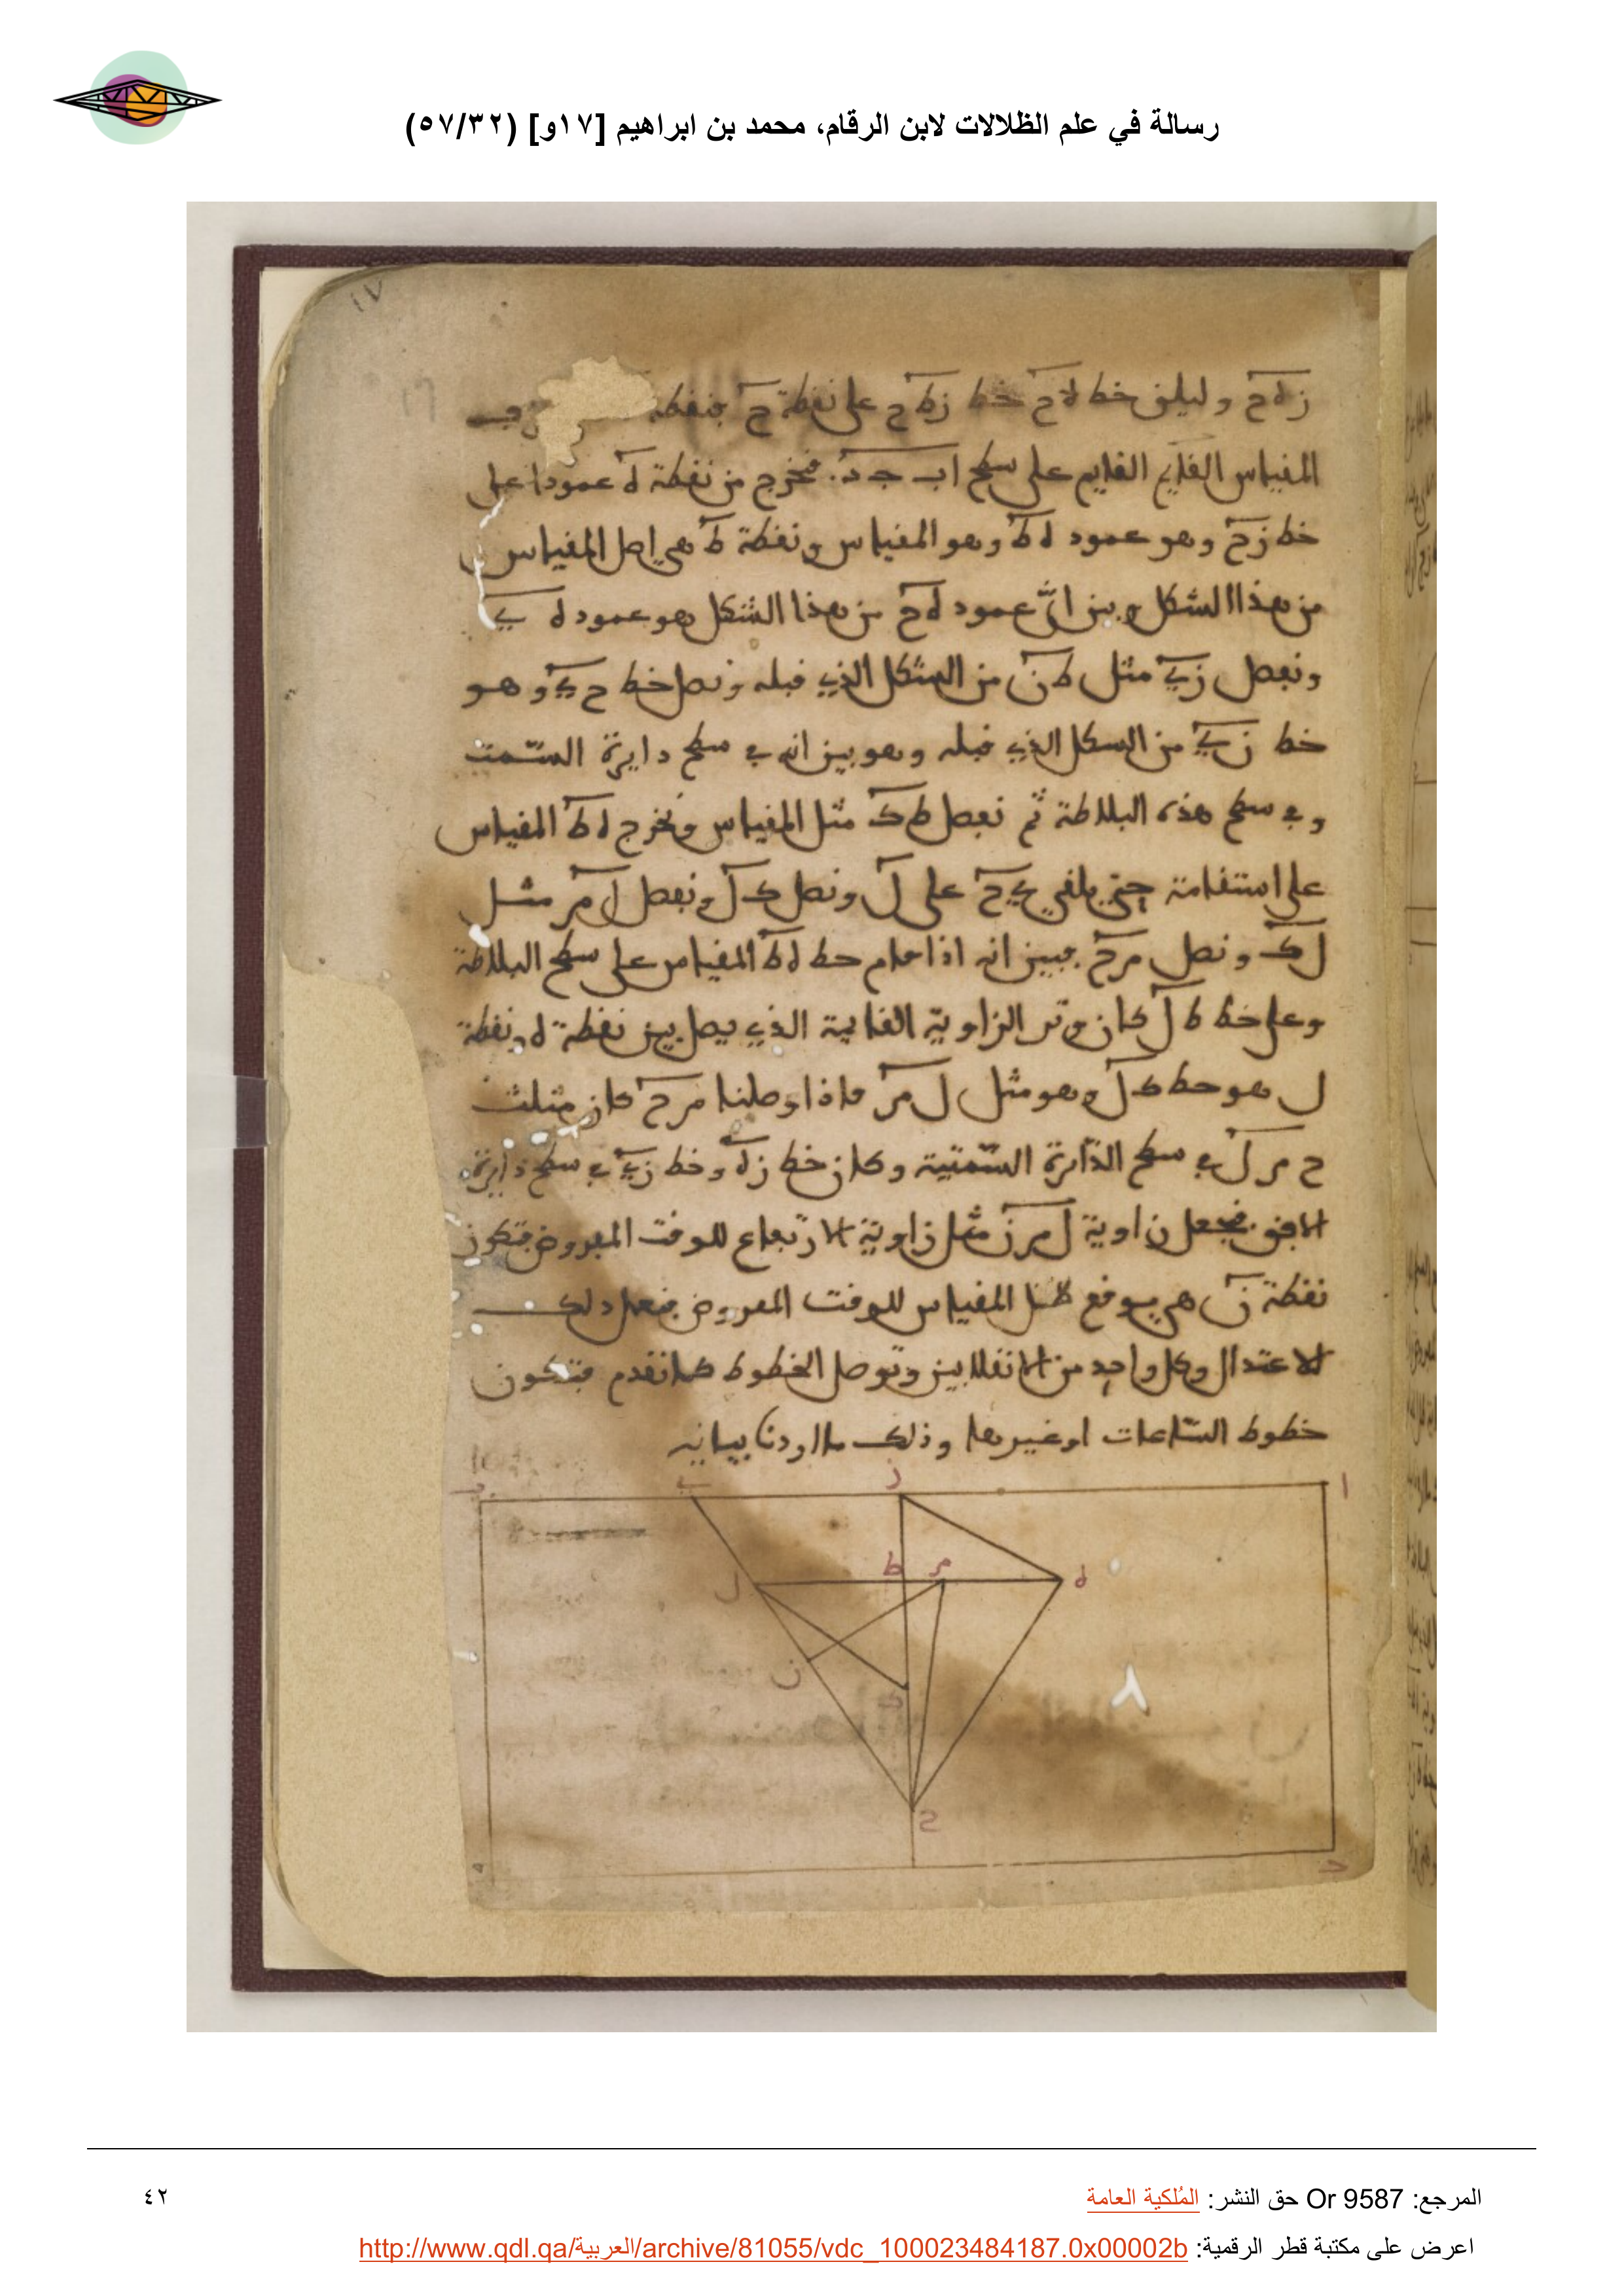 رسالة في علم الظلالات لابن الرقام، محمد بن ابراهيم [١٧و] (٥٧/٣٢)
١٧
زهح وليلق خط هح خط زطح على نقطة ح فنقطة
المقياس القايم القايم على سطح اب جد. فنخرج من نقطة ه عمودا على
خط زح وهو عمود هط وهو المقياس ونقطة ط هي اصل المقياس
من هذا الشكل وبين ان عمود هح من هذا الشكل هو عمود ه ي
ونفصل زي مثل طن من الشكل الذي قبله ونصل خط ح ي وهو
خط زي من الشكل الذي قبله وهو بين انه في سطح دايرة السمت
وفي سطح هذه البلاطة ثم نفصل طك مثل المقياس ونخرج هط المقياس
على استقامة حتى يلقى ي ح على ل ونصل كل ونفصل ل م مثل
لك ونصل م ح فبين انه اذا قام خط هط المقياس على سطح البلاطة
وعلى خط ط ل كان وتر الزاوية القايمة الذي يصل بين نقطة ه ونقطة
ل هو خط كل وهو مثل ل م فاذا وصلنا م ح كان مثلث
ح م ل في سطح الدايرة السمتية وكان خط زه وخط زي في سطح دايرة
الافق فنجعل زاوية ل م ن مثل زاوية الارتفاع للوقت المفروض فتكون
نقطة ن هي موقع ظل المقياس للوقت المفروض فنعمل ذلك
الاعتدال وكل واحد من الانقلابين وتوصل الخطوط كما تقدم فتكون
خطوط الساعات او غيرها وذلك ما اردنا بيانه
ا ز ي ب
ه م ط ل
ن ك
ح
د
المرجع: Or 9587 حق النشر: المُلكية العامة
٤٢
اعرض على مكتبة قطر الرقمية: http://www.qdl.qa/العربية/archive/81055/vdc_100023484187.0x00002b